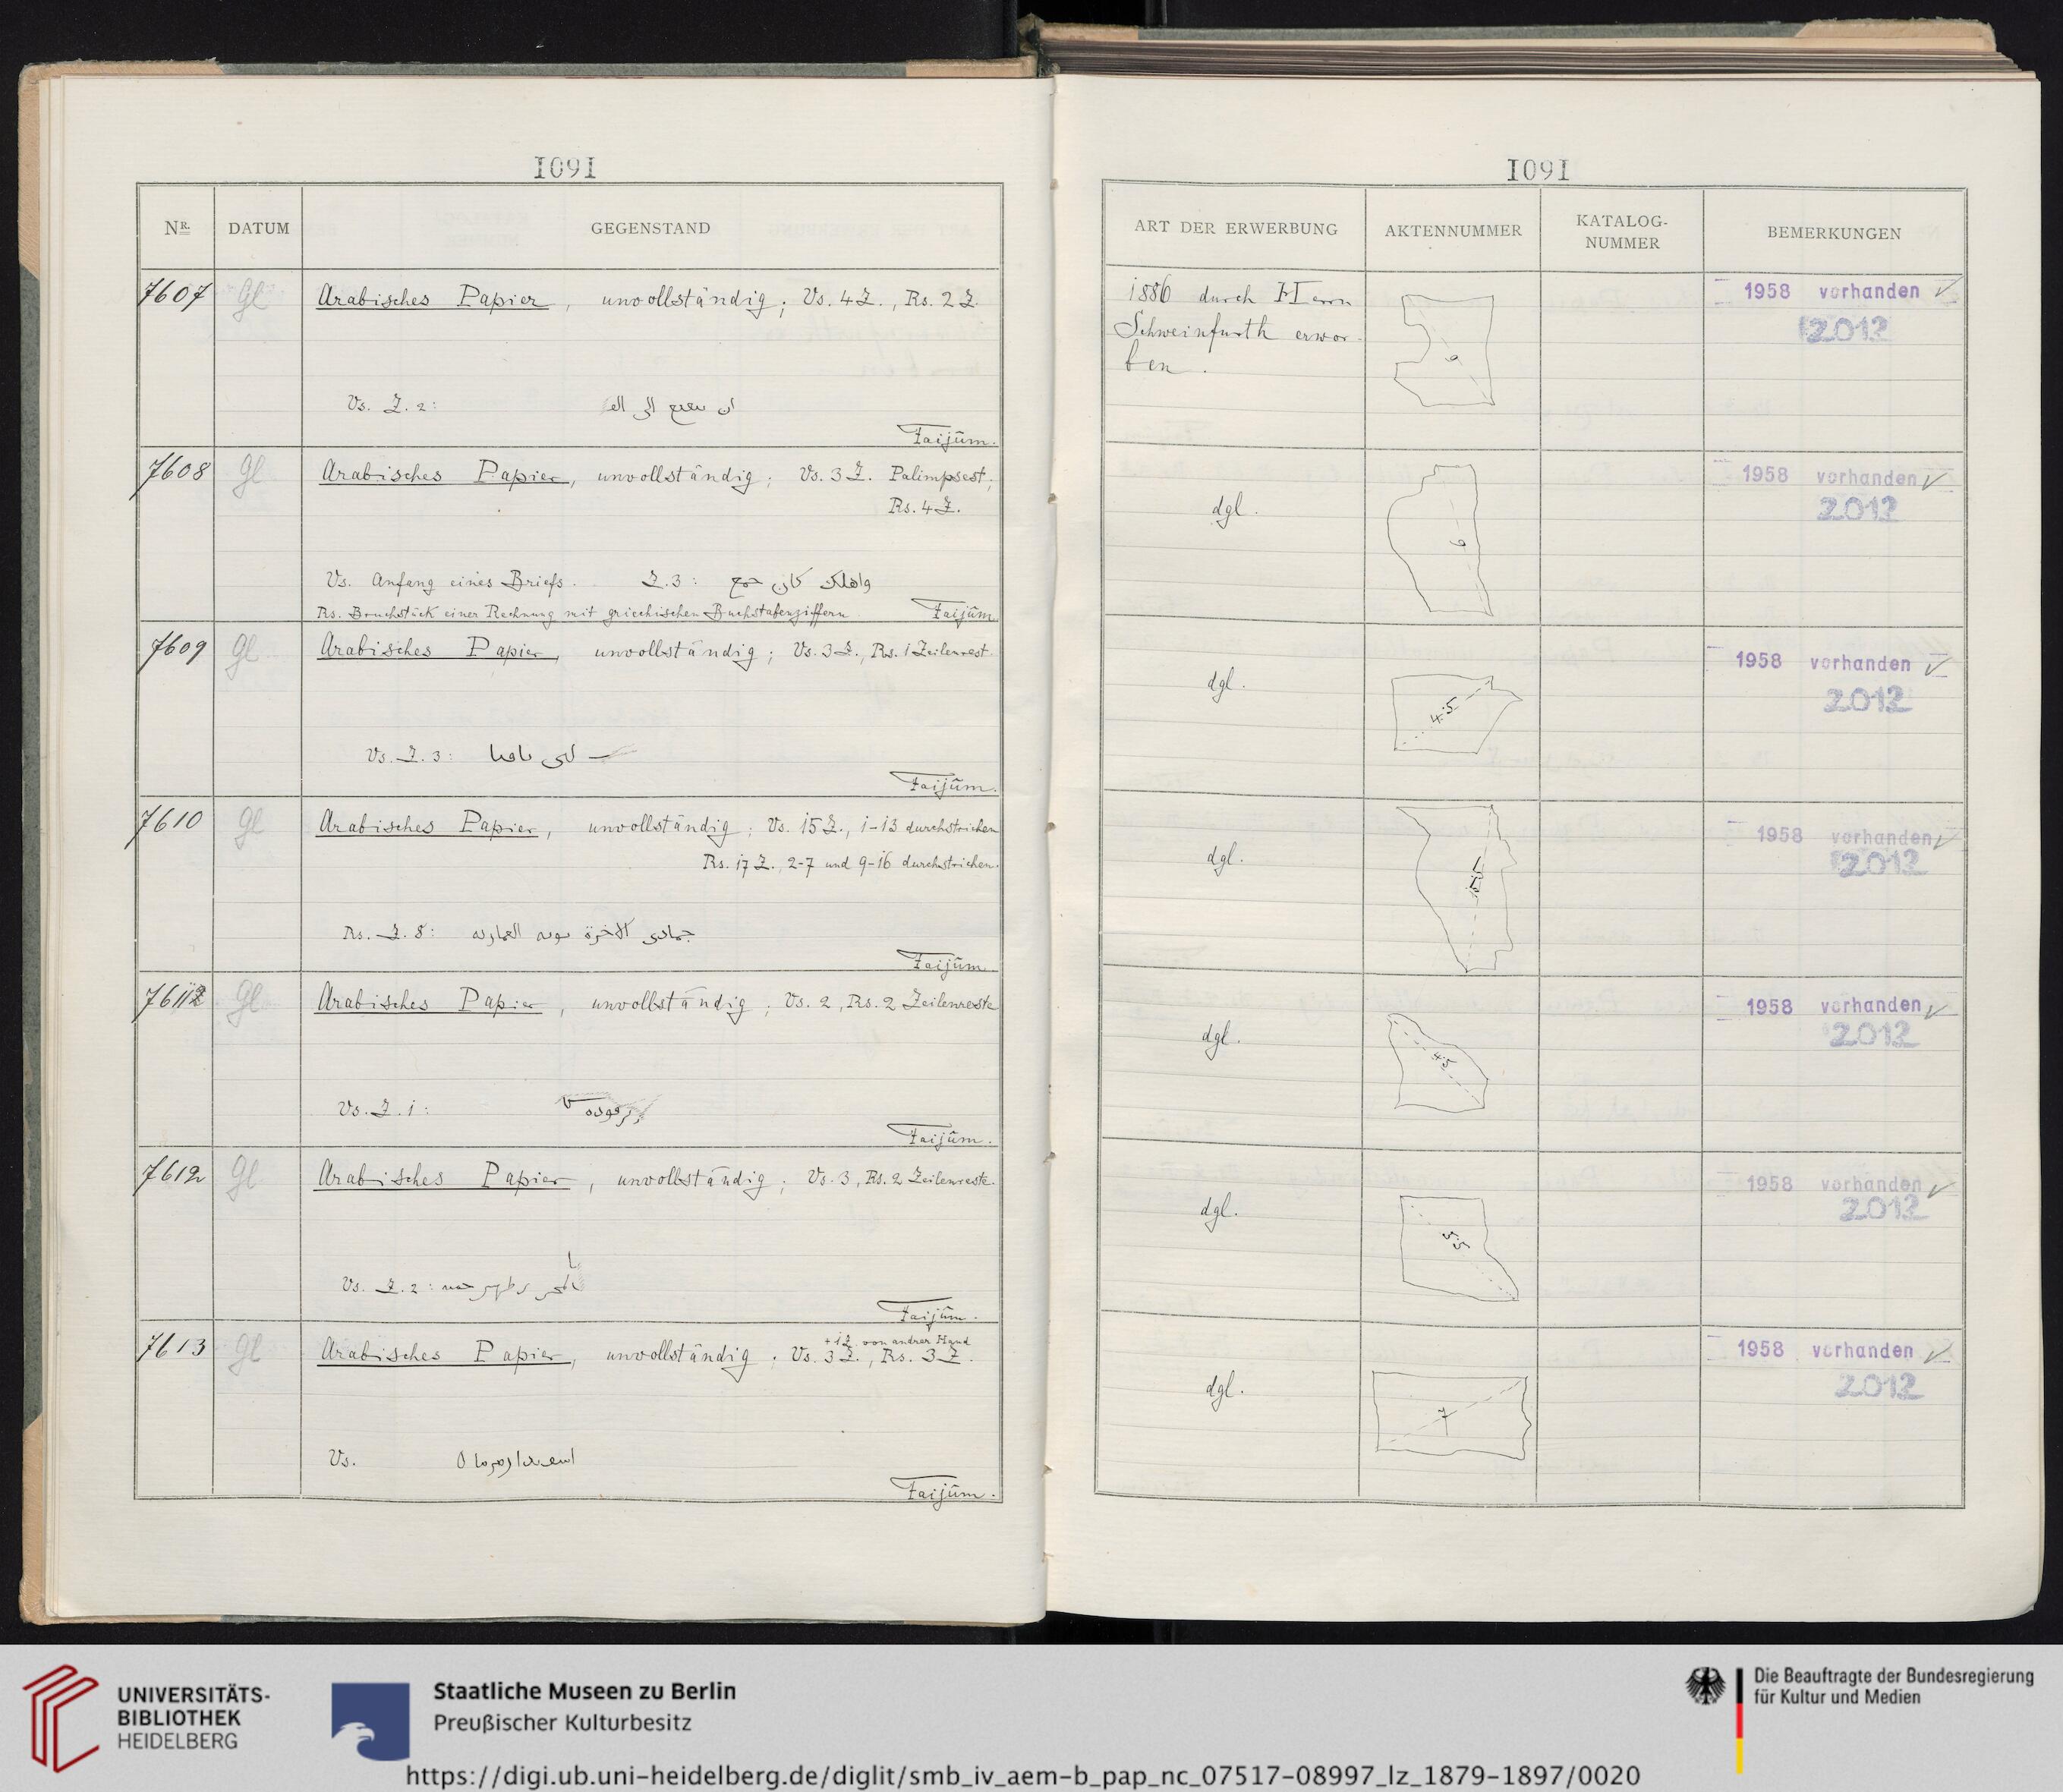 1091
NR. DATUM GEGENSTAND
7607 Gl Arabisches Papier, unvollständig; Vs. 4 Z., Rs. 2 Z.
Vs. Z. 2: ان الى
Faijûm.
7608 Gl Arabisches Papier, unvollständig; Vs. 3 Z. Palimpsest;
Rs. 4 Z.
Vs. Anfang eines Briefs. Z. 3: واهلك كان
Rs. Bruchstück einer Rechnung mit griechischen Buchstabenziffern Faijûm
7609 Gl Arabisches Papier, unvollständig; Vs. 3 Z., Rs. 1 Zeilenrest.
Vs. Z. 3:
Faijûm.
7610 Gl Arabisches Papier, unvollständig; Vs. 15 Z., 1-13 durchstrichen
Rs. 17 Z., 2-7 und 9-16 durchstrichen.
Rs. Z. 8: جمادى الاخرة
Faijûm.
7611 Gl Arabisches Papier, unvollständig; Vs. 2, Rs. 2 Zeilenreste
Vs. Z. 1:
Faijûm.
7612 Gl Arabisches Papier, unvollständig; Vs. 3, Rs. 2 Zeilenreste.
Vs. Z. 2:
Faijûm.
+ 1 Z. von andrer Hand
7613 Gl Arabisches Papier, unvollständig; Vs. 3 Z., Rs. 3 Z.
Vs.
Faijûm.
1091
ART DER ERWERBUNG AKTENNUMMER KATALOG-NUMMER BEMERKUNGEN
1886 durch Herrn
Schweinfurth erwor-
ben.
9
1958 vorhanden ✓
2012
dgl.
9
1958 vorhanden ✓
2012
dgl.
4·5
1958 vorhanden ✓
2012
dgl.
1958 vorhanden ✓
2012
dgl.
4·5
1958 vorhanden ✓
2012
dgl.
5·5
1958 vorhanden ✓
2012
dgl.
7
1958 vorhanden ✓
2012
UNIVERSITÄTS-
BIBLIOTHEK
HEIDELBERG
Staatliche Museen zu Berlin
Preußischer Kulturbesitz
Die Beauftragte der Bundesregierung
für Kultur und Medien
https://digi.ub.uni-heidelberg.de/diglit/smb_iv_aem-b_pap_nc_07517-08997_lz_1879-1897/0020